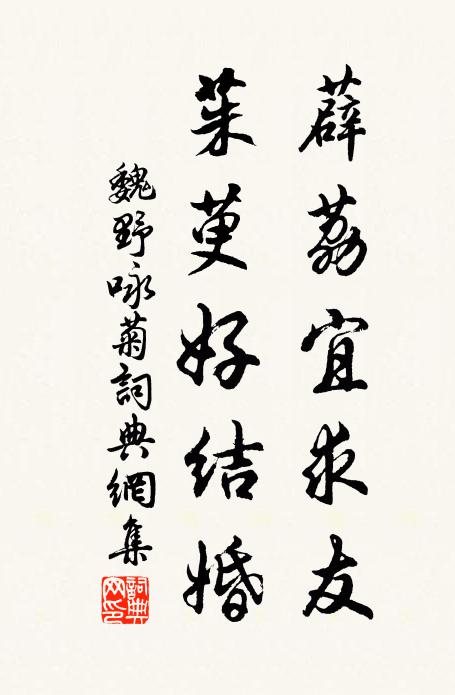 薜荔宜求友
茱萸好結婚
魏野咏菊詞典網集
詞典網印